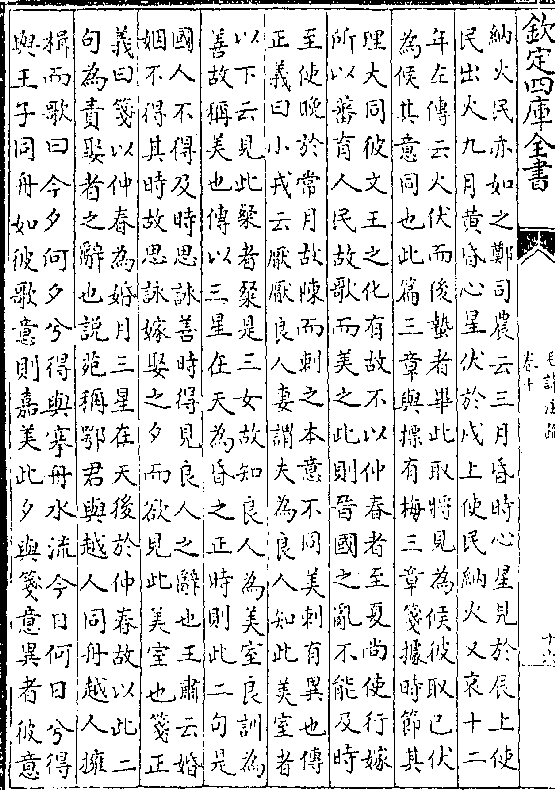 欽定四庫全書
毛詩注疏
卷十
納火民亦如之鄭司農云三月昏時心星見於辰上使
民出火九月黃昏心星伏於戌上使民納火又哀十二
年左傳云火伏而後蟄者畢此取將見為候彼取已伏
為候其意同也此篇三章與摽有梅三章箋據時節其
理大同彼文王之化有故不以仲春者至夏尚使行嫁
所以蕃育人民故歌而美之此則晉國之亂不能及時
至使晚於常月故陳而刺之本意不同美刺有異也傳
正義曰小戎云厭厭良人妻謂夫為良人知此美室者
以下云見此粲者粲是三女故知良人為美室良訓為
善故稱美也傳以三星在天為昏之正時則此二句是
國人不得及時思詠善時得見良人之辭也王肅云婚
姻不得其時故思詠嫁娶之夕而欲見此美室也箋正
義曰箋以仲春為婚月三星在天後於仲春故以此二
句為責娶者之辭也說苑稱鄂君與越人同舟越人擁
楫而歌曰今夕何夕兮得與搴舟水流今日何日兮得
與王子同舟如彼歌意則嘉美此夕與箋意異者彼意